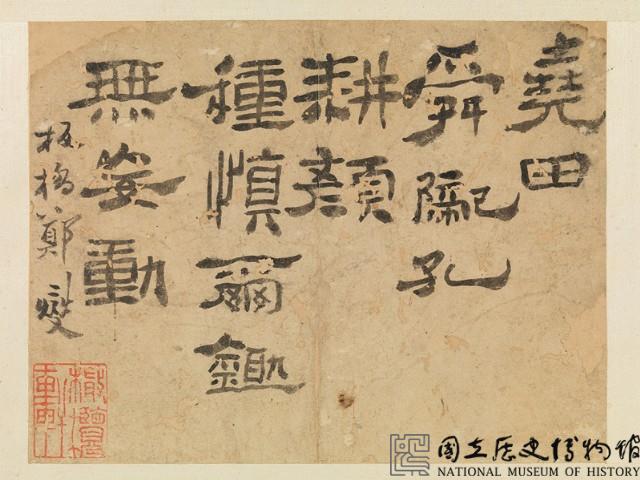 堯田
舜孔
耕顏
種慎爾鋤
無妄動
板橋鄭燮
國立歷史博物館
NATIONAL MUSEUM OF HISTORY